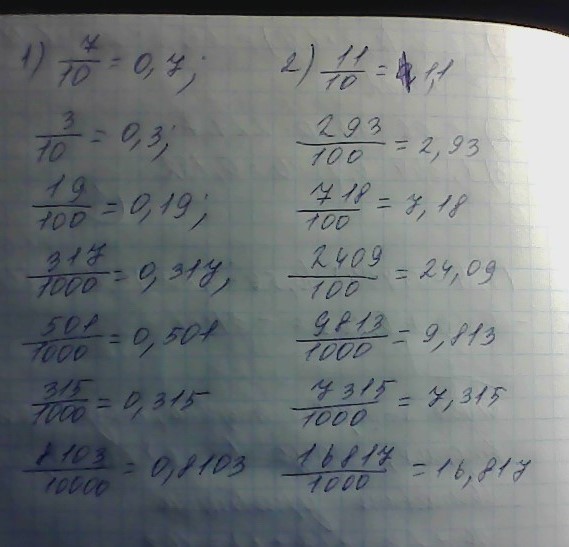 1) 7/10 = 0,7; 2) 11/10 = 1,1
3/10 = 0,3; 293/100 = 2,93
19/100 = 0,19; 718/100 = 7,18
317/1000 = 0,317; 2409/100 = 24,09
501/1000 = 0,501 9813/1000 = 9,813
315/1000 = 0,315 7315/1000 = 7,315
8103/10000 = 0,8103 16817/1000 = 16,817